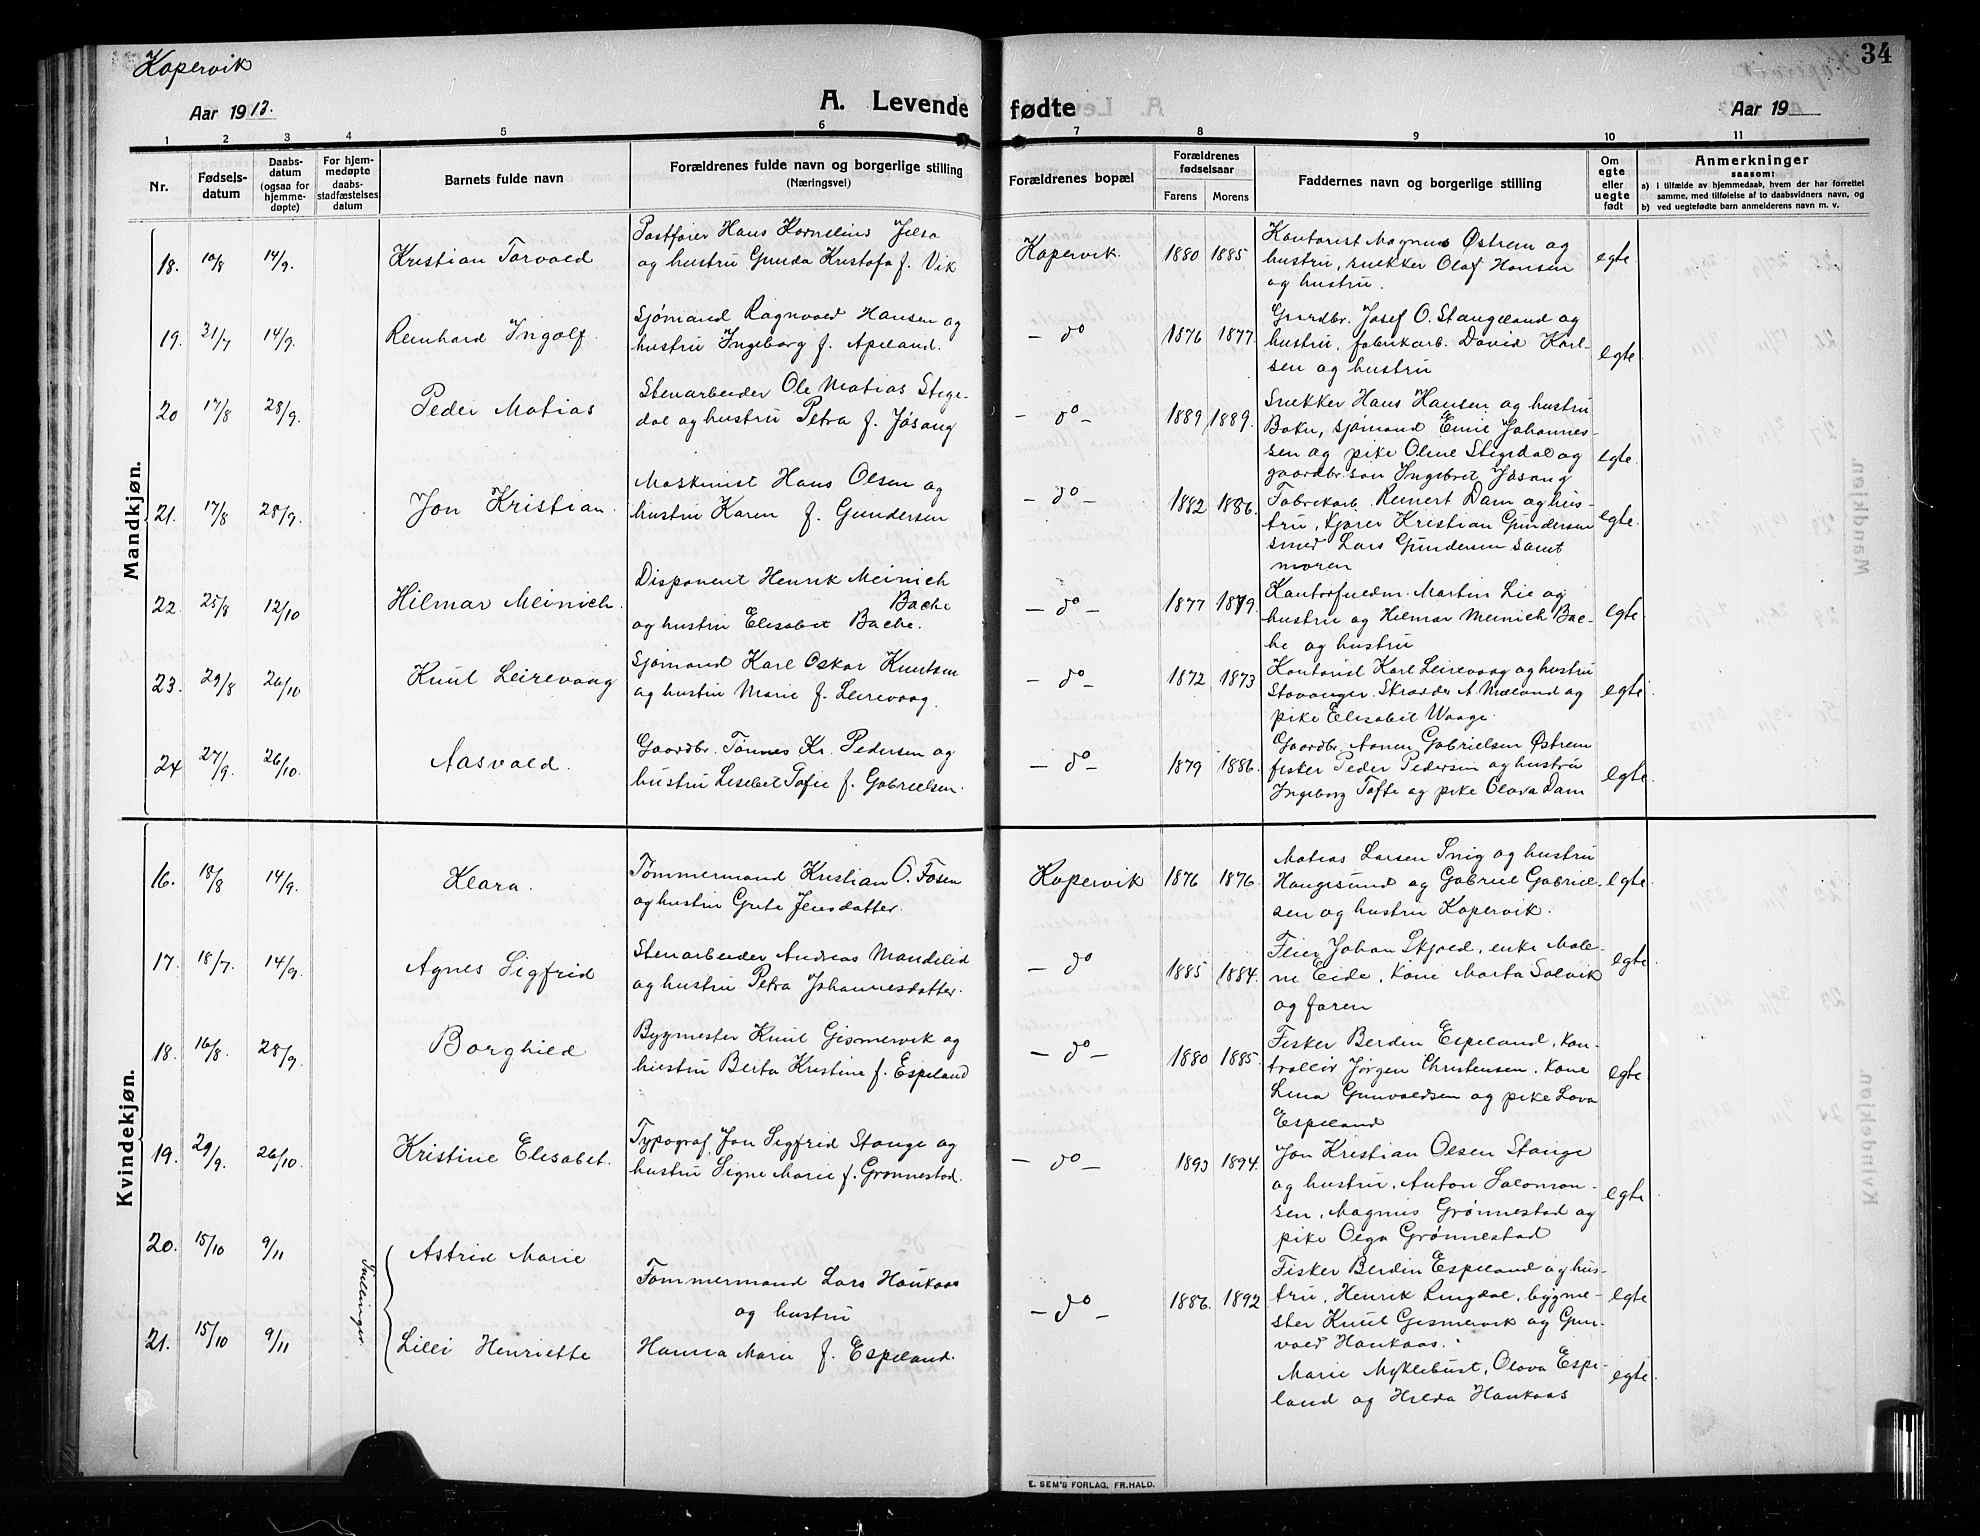 Kopervik
34
Aar 1913.
A. Levende fødte
Aar 19
1 2 3 4 5 6 7 8 9 10 11
Nr.
Fødsels-
datum
Daabs-
datum
(ogsaa for
hjemme-
døpte)
For hjem-
medøpte
daabs-
stadfæstelses
datum
Barnets fulde navn
Forældrenes fulde navn og borgerlige stilling
(Næringsvei)
Forældrenes bopæl
Forældrenes
fødselsaar
Farens Morens
Faddernes navn og borgerlige stilling
Om
egte
eller
uegte
født
Anmerkninger
saasom:
a) i tilfælde av hjemmedaab, hvem der har forrettet
samme, med tilføielse af to daabsvidners navn, og
b) ved uegtefødte barn anmelderens navn m. v.
Mandkjøn.
18. 10/8 14/9. Kristian Torvald
Postfører Hans Kornelius Jelsa
og hustru Gunda Kristofa f. Vik
Kopervik. 1880 1885
Kontorist Magnus Østrem og
hustru, snekker Olaf Hansen
og hustru.
egte
19. 31/7 14/9. Reinhard Ingolf.
Sjømand Ragnvald Hansen og
hustru Ingeborg f. Apeland.
— do 1876 1877.
Gaardbr. Josef O. Stangeland og
hustru, fabrikarb. David Karl-
sen og hustru
egte
20 17/8 28/9. Peder Matias
Stenarbeider Ole Matias Stege-
dal og hustru Petra f. Jøsang
— do — 1889 1889.
Snekker Hans Hansen og hustru
Bokn, sjømand Emil Johannes-
sen og pike Oline Stegedal og
gaardbr. søn Ingebret Jøsang
egte.
21. 17/8 28/9. Jon Kristian.
Maskinist Hans Olsen og
hustru Karen f. Gundersen
— do — 1882 1886.
Fabrikarb. Reinert Dam og hus-
tru, kjører Kristian Gundersen
smed Lars Gundersen samt
moren
egte.
22. 25/8 12/10 Hilmar Meinich.
Disponent Henrik Meinich
Bache
og hustru Elisabet Bache.
— do — 1877 1879.
Kontorfuldm. Martin Lie og
hustru og Hilmar Meinich Bac-
he og hustru
egte.
23. 29/8 26/10 Knut Leirevaag
Sjømand Karl Oskar Knutsen
og hustru Marie f. Leirevaag.
— do — 1872 1873
Kontorist Karl Leirevaag og hustru
Stavanger. Skrædder A. Mæland og
pike Elisabet Waage.
egte.
24 27/9. 26/10. Aasvald.
Gaardbr. Tønnes Kr. Pedersen og
hustru Lisebet Tofie f. Gabrielsen.
— do — 1879 1886.
Gaardbr. Aanen Gabrielsen Østrem
fisker Peder Pedersen og hustru
Ingeborg Tofte og pike Olava Dam
egte.
Kvindekjøn.
16. 18/8 14/9. Klara.
Tømmermand Kristian O. Fosen
og hustru Grete Jensdatter.
Kopervik 1876 1876.
Matias Larsen Snig og hustru
Haugesund og Gabriel Gabriel-
sen og hustru Kopervik.
egte.
17. 18/7. 14/9. Agnes Sigfrid
Stenarbeider Andreas Mandelid
og hustru Petra Johannesdatter.
— do 1885 1884.
Feier Johan Skjold, enke Male-
ne Eide, Kone Marta Solvik
og faren
egte.
18. 16/8. 28/9. Borghild
Bygmester Knut Gismervik og
hustru Berta Kristine f. Espeland
— do — 1880 1885.
Fisker Berdin Espeland, kon-
trollør Jørgen Christensen, kone
Lina Gunvaldsen og pike Lova
Espeland
egte.
19. 29/9. 26/10. Kristine Elisabet.
Typograf Jon Sigfrid Stange og
hustru Signe Marie f. Grønnestad.
— do — 1893 1894.
Jon Kristian Olsen Stange
og hustru, Anton Salomon-
sen, Magnus Grønnestad og
pike Olga Grønnestad
egte
20. 15/10 9/11 Astrid Marie
Tvillinger
Tømmermand Lars Haukaas
og hustru
Hanna Marie f. Espeland.
— do — 1886. 1892
Fisker Berdin Espeland og hus-
tru, Henrik Ringdal, bygme-
ster Knut Gismervik og Gun-
vald Haukaas.
egte
21. 15/10 9/11 Lilli Henriette
Marie Myklebust, Olava Espe-
land og Hilda Haukaas
egte.
E. SEM'S FORLAG, FR.HALD.